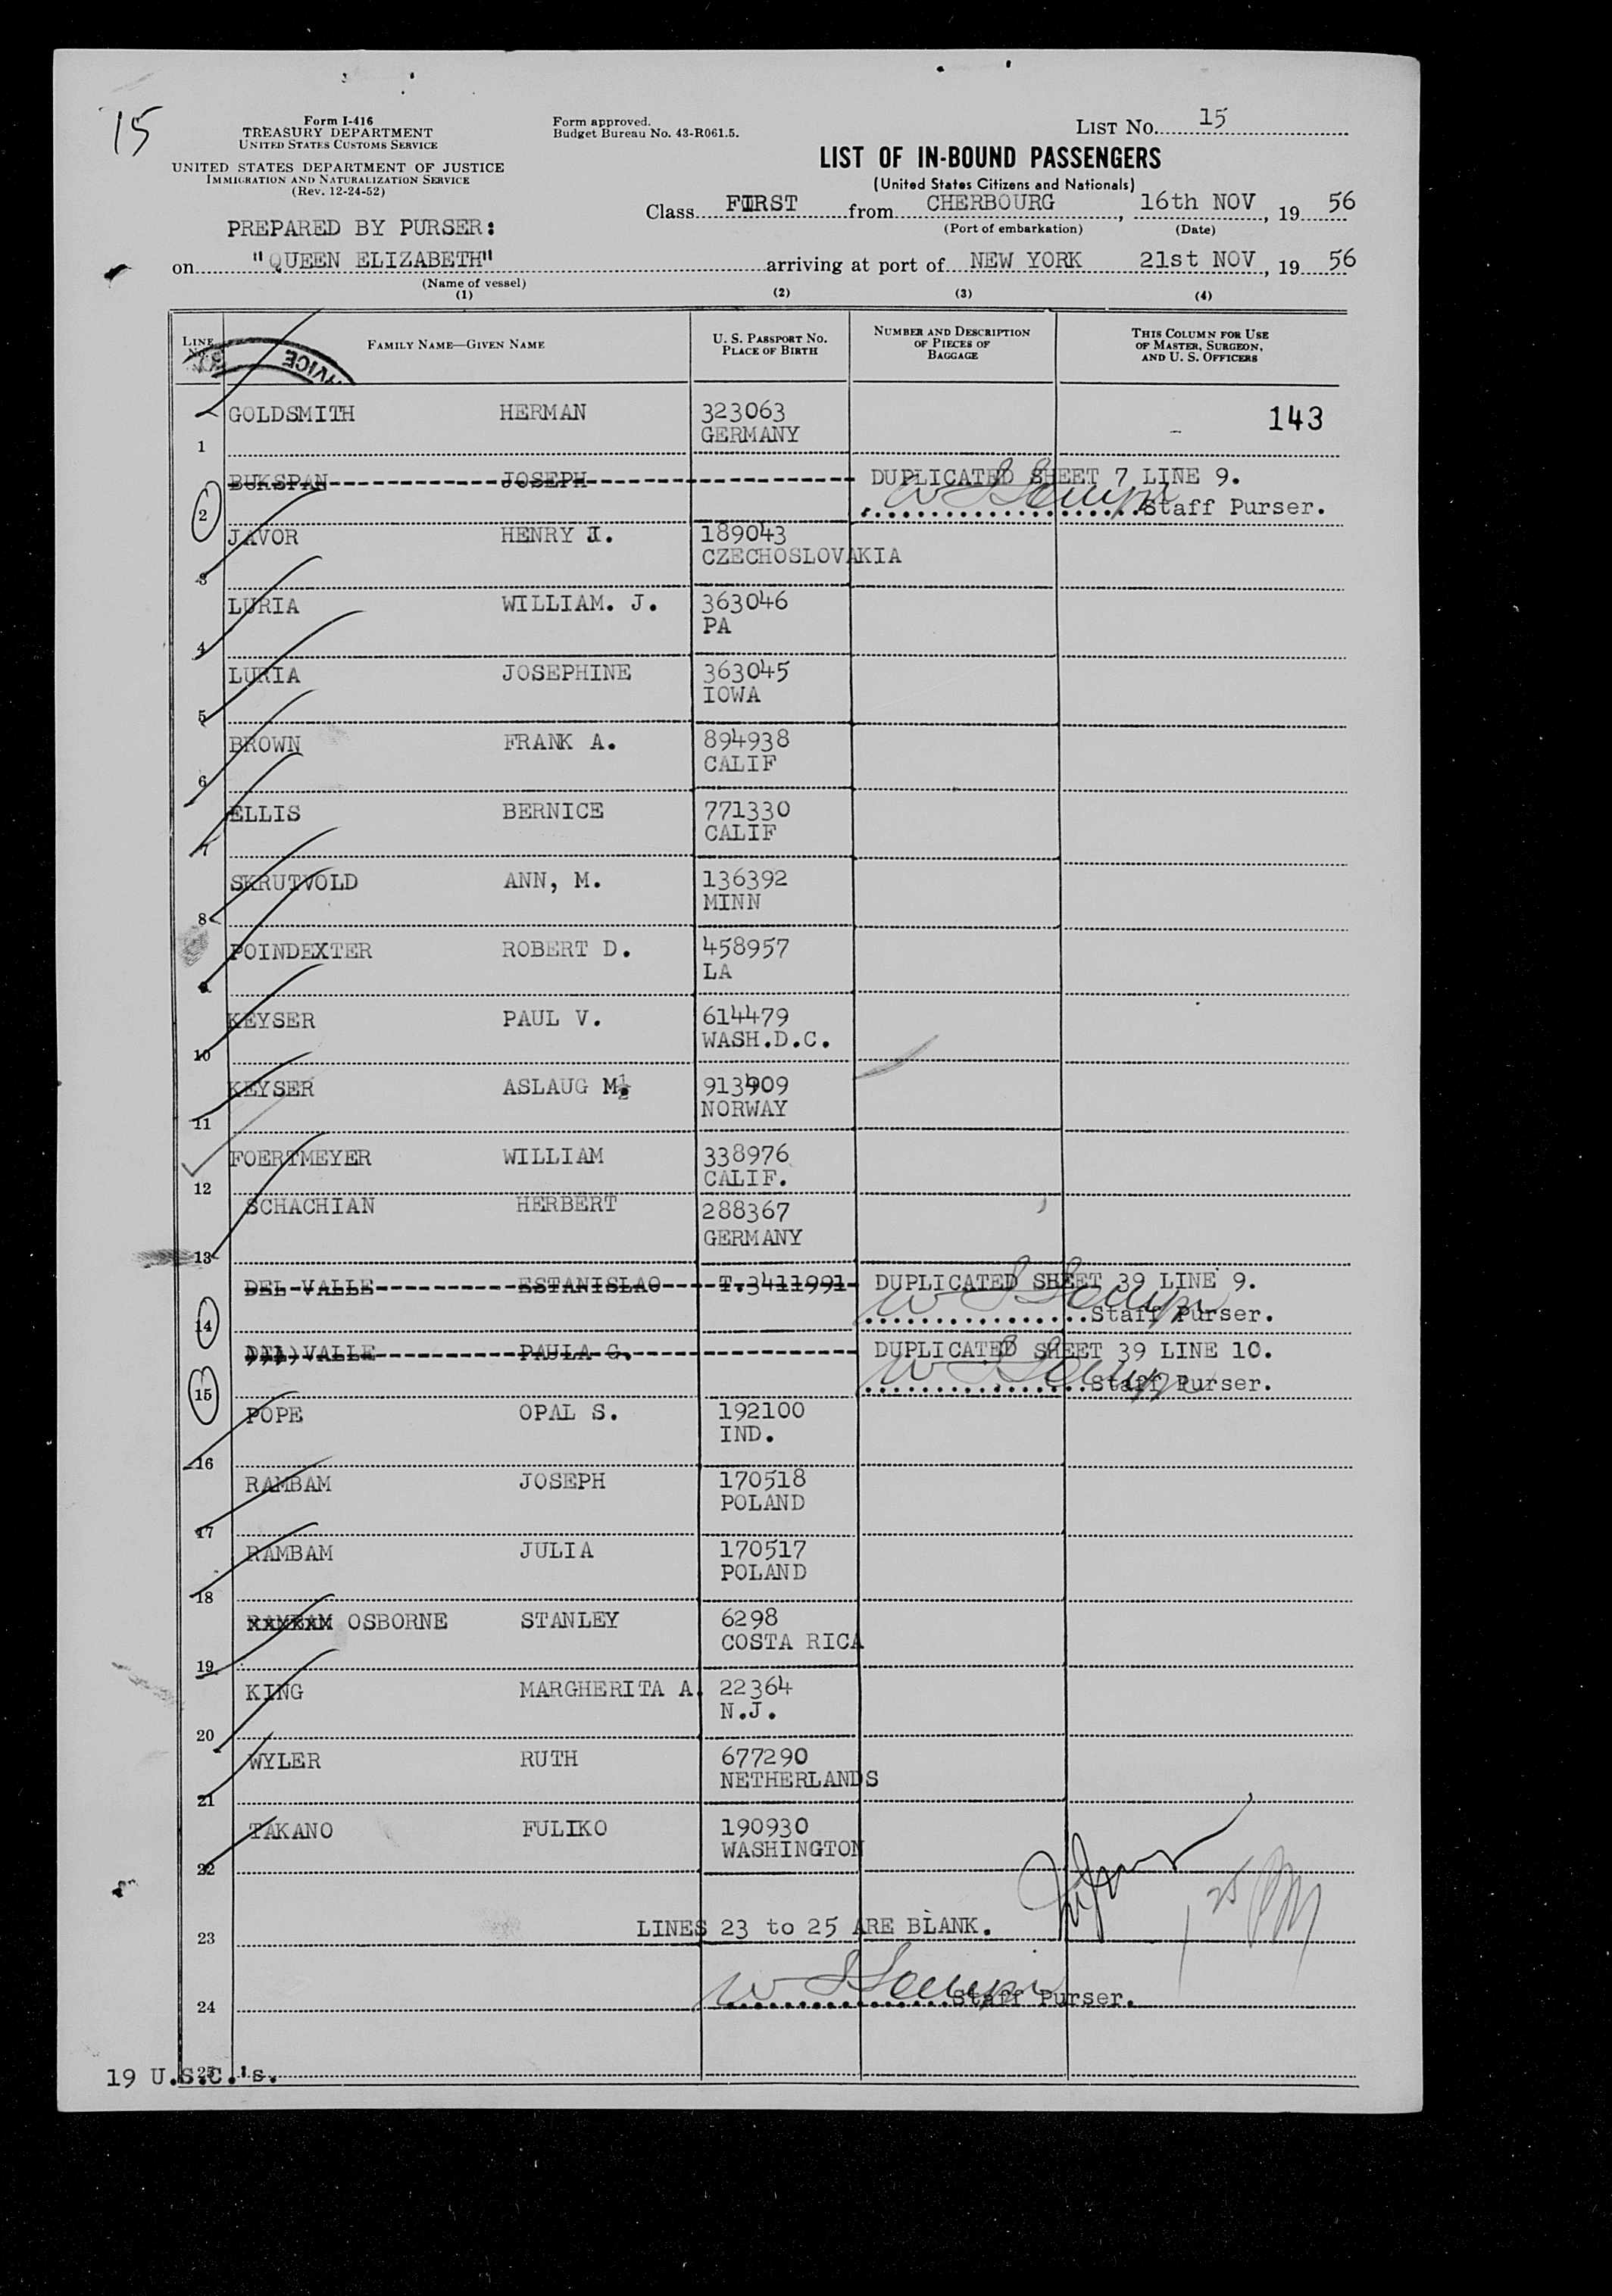 15
Form I-416
TREASURY DEPARTMENT
UNITED STATES CUSTOMS SERVICE
UNITED STATES DEPARTMENT OF JUSTICE
IMMIGRATION AND NATURALIZATION SERVICE
(Rev. 12-24-52)
Form approved.
Budget Bureau No. 43-R061.5.
LIST No. 15
LIST OF IN-BOUND PASSENGERS
(United States Citizens and Nationals)
Class FIRST from CHERBOURG, 16th NOV, 19 56
(Port of embarkation) (Date)
PREPARED BY PURSER:
on "QUEEN ELIZABETH" arriving at port of NEW YORK 21st NOV, 19 56
(Name of vessel)
(1) (2) (3) (4)
LINE No. FAMILY NAME—GIVEN NAME U. S. PASSPORT No. PLACE OF BIRTH NUMBER AND DESCRIPTION OF PIECES OF BAGGAGE THIS COLUMN FOR USE OF MASTER, SURGEON, AND U. S. OFFICERS
GOLDSMITH HERMAN 323063 143
1 GERMANY
BUKSPAN JOSEPH DUPLICATED SHEET 7 LINE 9.
2 Staff Purser.
JAVOR HENRY I. 189043
3 CZECHOSLOVAKIA
LURIA WILLIAM. J. 363046
4 PA
LURIA JOSEPHINE 363045
5 IOWA
BROWN FRANK A. 894938
6 CALIF
ELLIS BERNICE 771330
7 CALIF
SKRUTVOLD ANN, M. 136392
8 MINN
POINDEXTER ROBERT D. 458957
9 LA
KEYSER PAUL V. 614479
10 WASH.D.C.
KEYSER ASLAUG M. 913909
11 NORWAY
FOERTMEYER WILLIAM 338976
12 CALIF.
SCHACHIAN HERBERT 288367
13 GERMANY
DEL VALLE ESTANISLAO T.3411991 DUPLICATED SHEET 39 LINE 9.
14 Staff Purser.
VALLE PAULA C. DUPLICATED SHEET 39 LINE 10.
15 Staff Purser.
POPE OPAL S. 192100
16 IND.
RAMBAM JOSEPH 170518
17 POLAND
RAMBAM JULIA 170517
18 POLAND
RAMBAM OSBORNE STANLEY 6298
19 COSTA RICA
KING MARGHERITA A. 22364
20 N.J.
WYLER RUTH 677290
21 NETHERLANDS
TAKANO FULIKO 190930
22 WASHINGTON
LINES 23 to 25 ARE BLANK.
23
24 Staff Purser.
25
19 U.S.C.'s.